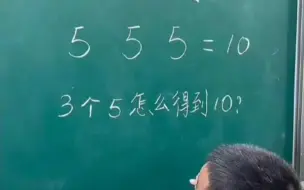 5 5 5 = 10
3个5怎么得到10?